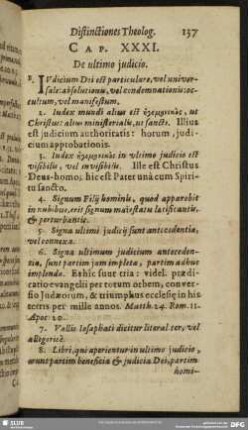 Distinctiones Theolog. 137
CAP. XXXI.
De ultimo judicio.
1. IVdicium Dei est particulare, vel univer-
sale: absolutionis, vel condemnationis: oc-
cultum, vel manifestum.
2. Iudex mundi alius est ut
Christus: alius ministerialis, ut sancti. Illius
est judicium authoritatis: horum, judi-
cium approbationis.
3. Iudex in ultimo judicio est
visibilis, vel invisibilis. Ille est Christus
Deus-homo; hic est Pater unà cum Spiri-
tu sancto.
4. Signum Filij hominis, quod apparebit
in nubibus, erit signum majestatis
& perturbantis.
5. Signa ultimi judicij sunt antecedentia,
vel connexa.
6. Signa ultimum judicium anteceden-
tia, sunt partim jam impleta, partim adhuc
implenda. Ex his sunt tria: videl. præ-
dicatio evangelii per totum orbem, conver-
sio Judæorum, & triumphus ecclesiæ in his
terris per mille annos. Matth. 24. Rom. 11.
Apoc. 20.
7. Vallis Iosaphati dicitur literaliter, vel
allegoricè.
8. Libri, qui aperientur in ultimo judicio,
erunt partim beneficia & judicia Dei, partim
homi-
SLUB
DFG